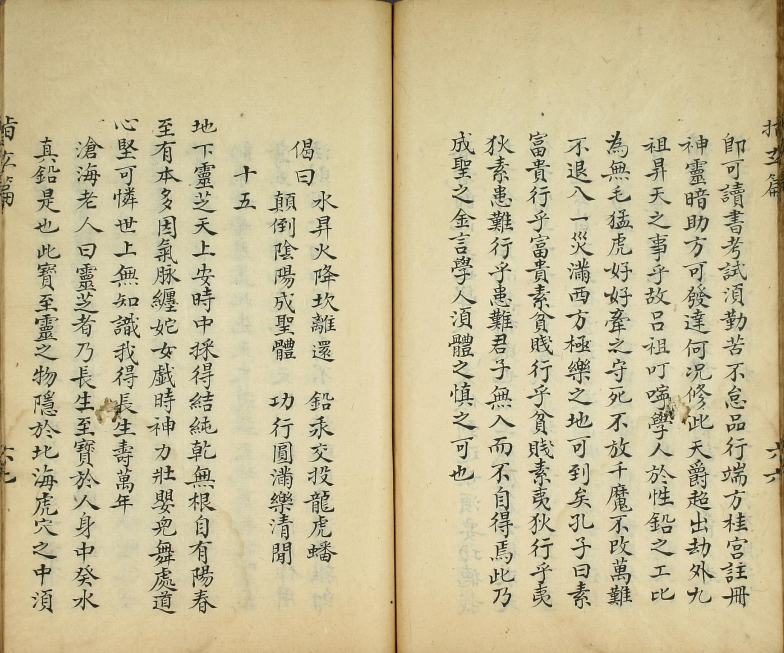 指玄篇
六六
即可讀書考試須勤苦不怠品行端方桂宮註冊
神靈暗助方可發達何况修此天爵超出劫外九
祖昇天之事乎故吕祖叮嚀學人於性鉛之工比
為無毛猛虎好好牽之守死不放千魔不改萬難
不退入一災滿西方極樂之地可到矣孔子曰素
富貴行乎富貴素貧賤行乎貧賤素夷狄行乎夷
狄素患難行乎患難君子無入而不自得焉此乃
成聖之金言學人須體之慎之可也
偈曰
水昇火降坎離還 鉛汞交投龍虎蟠
顛倒陰陽成聖體 功行圓滿樂清閒
十五
地下靈芝天上安時中採得結純乾無根自有陽春
至有本多因氣脉纏姹女戲時神力壯嬰兒舞處道
心堅可憐世上無知識我得長生壽萬年
滄海老人曰靈芝者乃長生至寶於人身中癸水
真鉛是也此寶至靈之物隱於北海虎穴之中須
指玄篇
六七